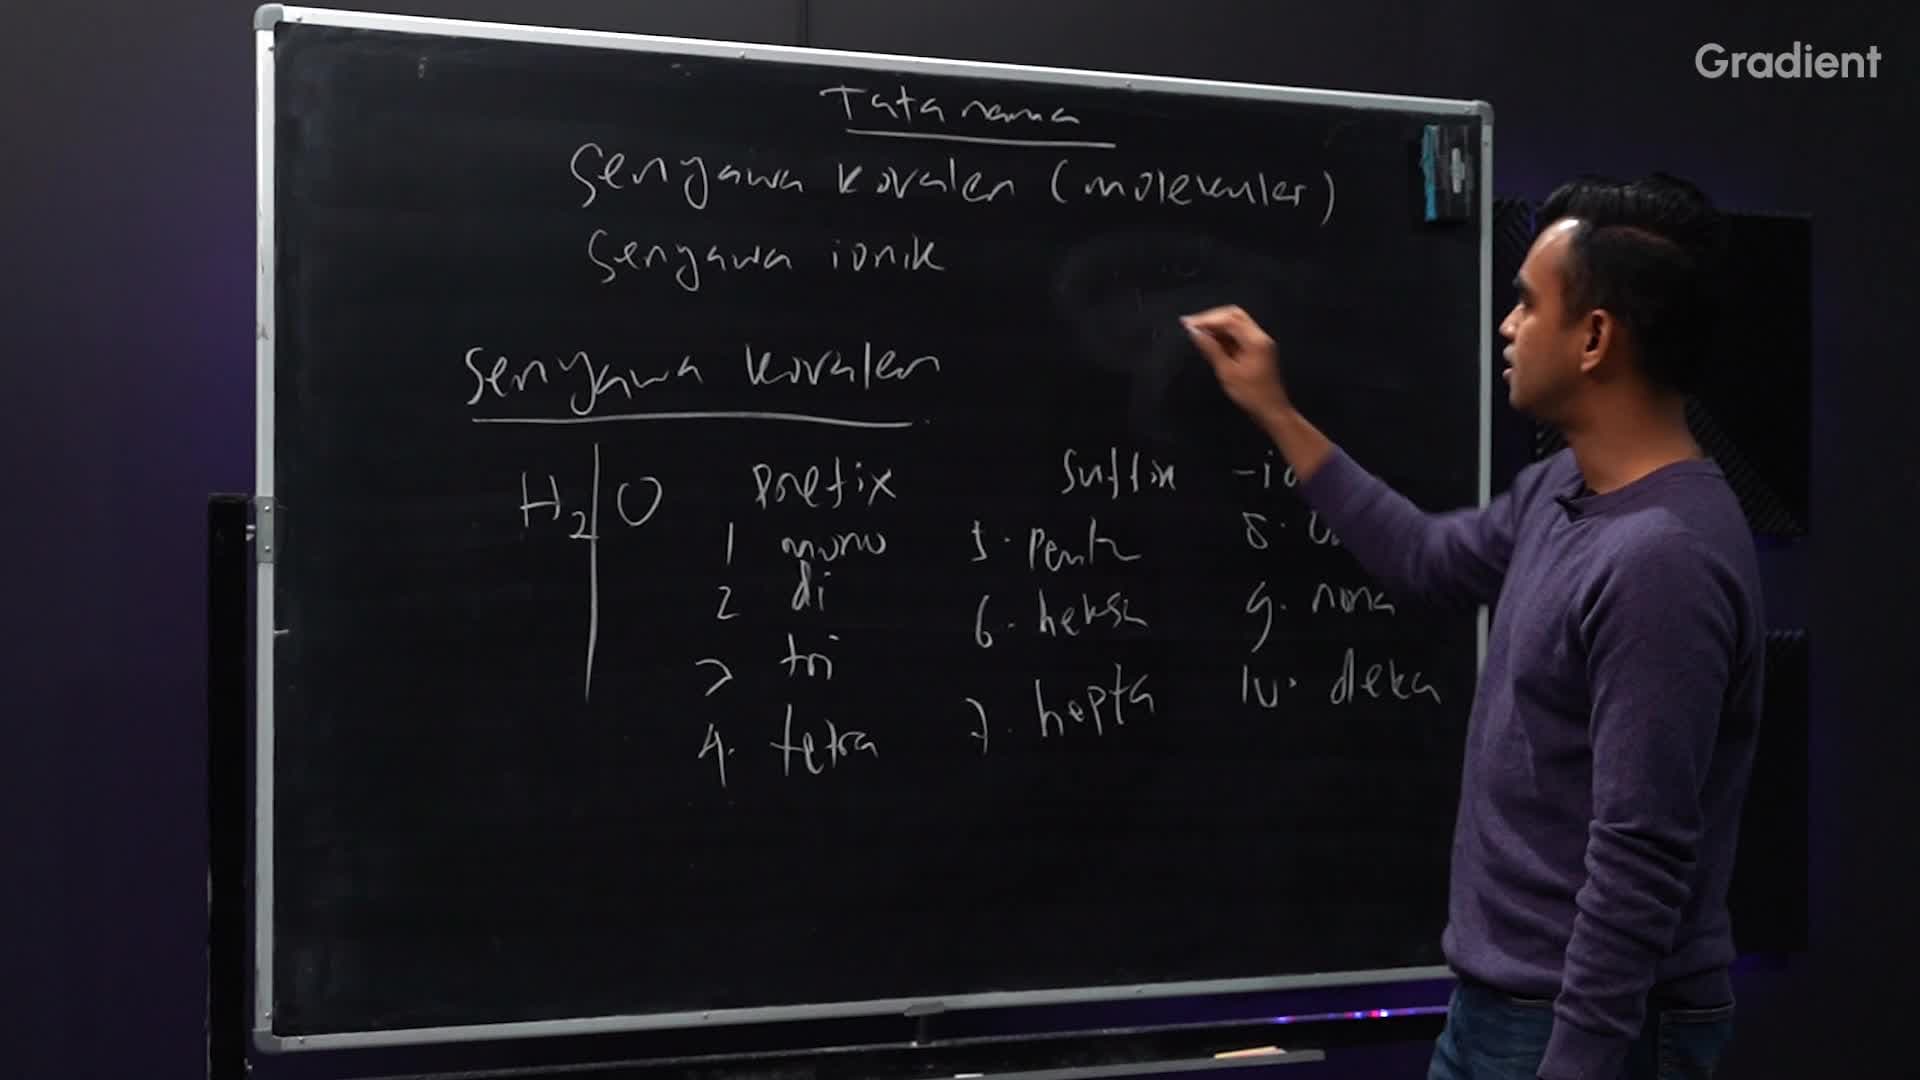 Gradient
Tata nama
Senyawa kovalen (molekuler)
Senyawa ionik
Senyawa kovalen
H2 O
Prefix
1 mono
2 di
3 tri
4. tetra
5. penta
6. heksa
7. hepta
Suffix
8.
9. nona
10. deka